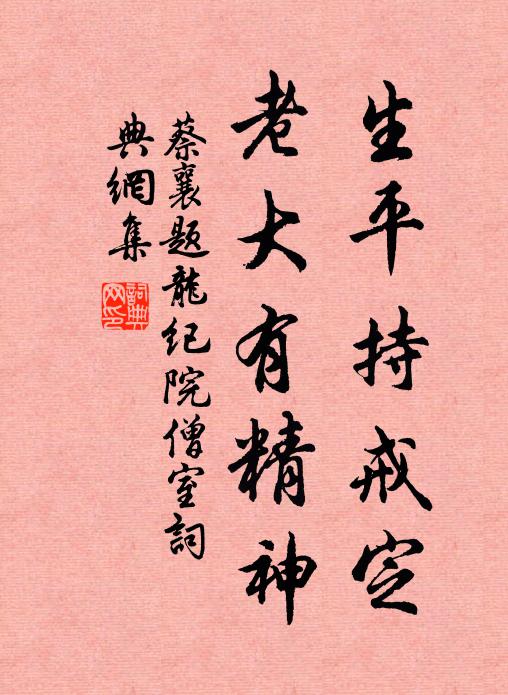 生平持戒定
老大有精神
蔡襄題龍紀院僧室詞
典網集
詞典網印